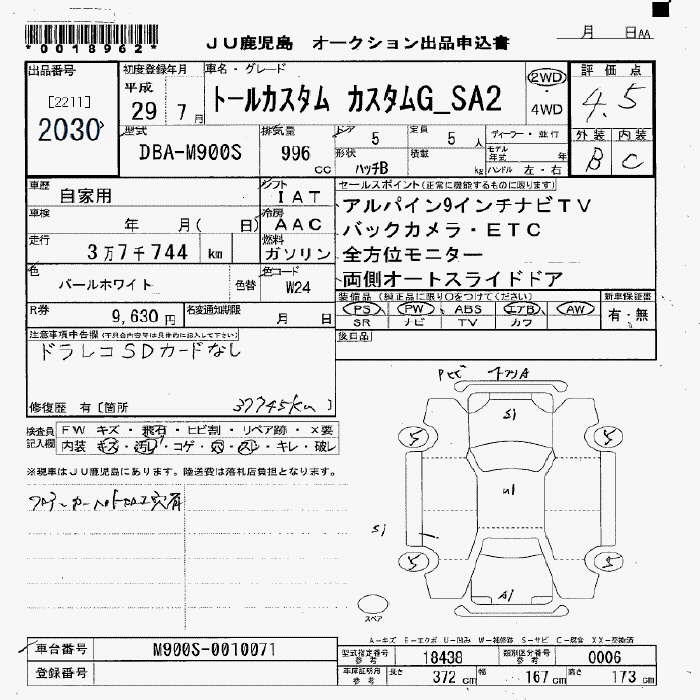 *0018962*
JU鹿児島 オークション出品申込書
月 日AA
出品番号
[2211]
2030
初度登録年月
平成
29 7月
車名・グレード
トールカスタム カスタムG_SA2
2WD
・
4WD
評価点
4.5
外装 内装
B C
型式
DBA-M900S
排気量
996 cc
ドア
5
定員
5人
形状
ハッチB
積載
kg
ディーラー・並行
モデル年式 年
ハンドル 左・右
車歴
自家用
シフト
IAT
車検
年 月( 日)
冷房
AAC
走行
3万7千744 km
燃料
ガソリン
色
パールホワイト
色替
色コード
W24
R券
9,630円
名変通知期限
月 日
セールスポイント(正常に機能するものに限ります)
アルパイン9インチナビTV
バックカメラ・ETC
全方位モニター
両側オートスライドドア
装備品(純正品に限り○をつけてください)
PS PW ABS エアB AW
SR ナビ TV カワ
新車保証書
有・無
後日品
注意事項申告欄(下見会内容等は具体的に記入して下さい)
ドラレコSDカードなし
修復歴 有〔箇所
37745km 〕
検査員記入欄
FW キズ・飛石・ヒビ割・リペア跡・×要
内装 キズ・汚レ・コゲ・穴・スレ・キレ・破レ
※現車はJU鹿児島にあります。陸送費は落札店負担となります。
フロアーカーペット 穴有
Si
5 5
U1
Si
5 5
A1
スペア
A-キズ E-エクボ U-凹み W-補修跡 S-サビ C-腐食 XX-交換済
車台番号
M900S-0010071
登録番号
型式指定番号 参考
18438
類別区分番号 参考
0006
車庫証明用 参考
長さ 372 cm 幅 167 cm 高さ 173 cm